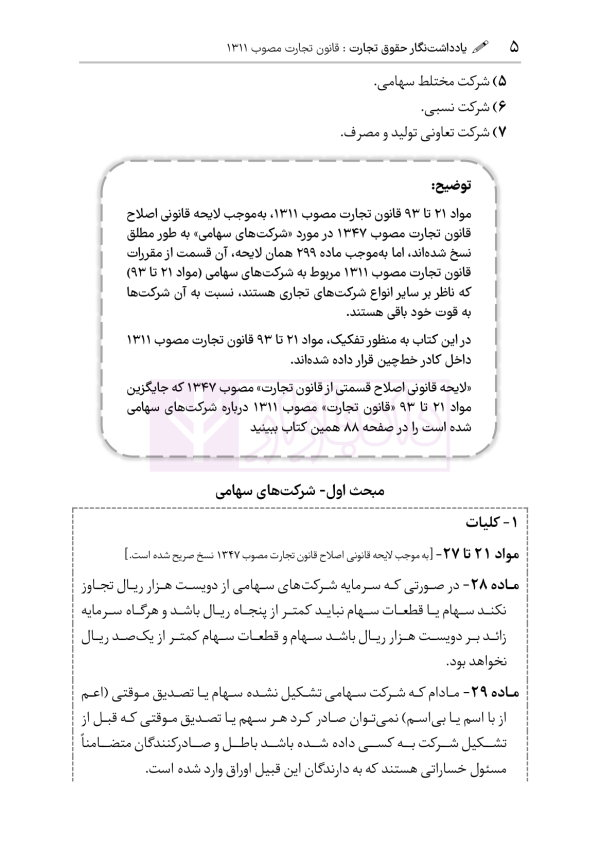 ۵ یادداشت‌نگار حقوق تجارت : قانون تجارت مصوب ۱۳۱۱
۵) شرکت مختلط سهامی.
۶) شرکت نسبی.
۷) شرکت تعاونی تولید و مصرف.
توضیح:
مواد ۲۱ تا ۹۳ قانون تجارت مصوب ۱۳۱۱، به‌موجب لایحه قانونی اصلاح
قانون تجارت مصوب ۱۳۴۷ در مورد «شرکت‌های سهامی» به طور مطلق
نسخ شده‌اند، اما به‌موجب ماده ۲۹۹ همان لایحه، آن قسمت از مقررات
قانون تجارت مصوب ۱۳۱۱ مربوط به شرکت‌های سهامی (مواد ۲۱ تا ۹۳)
که ناظر بر سایر انواع شرکت‌های تجاری هستند، نسبت به آن شرکت‌ها
به قوت خود باقی هستند.
در این کتاب به منظور تفکیک، مواد ۲۱ تا ۹۳ قانون تجارت مصوب ۱۳۱۱
داخل کادر خط‌چین قرار داده شده‌اند.
«لایحه قانونی اصلاح قسمتی از قانون تجارت» مصوب ۱۳۴۷ که جایگزین
مواد ۲۱ تا ۹۳ «قانون تجارت» مصوب ۱۳۱۱ درباره شرکت‌های سهامی
شده است را در صفحه ۸۸ همین کتاب ببینید
مبحث اول- شرکت‌های سهامی
۱- کلیات
مواد ۲۱ تا ۲۷- [به موجب لایحه قانونی اصلاح قانون تجارت مصوب ۱۳۴۷ نسخ صریح شده است.]
ماده ۲۸- در صورتی که سرمایه شرکت‌های سهامی از دویست هزار ریال تجاوز
نکند سهام یا قطعات سهام نباید کمتر از پنجاه ریال باشد و هرگاه سرمایه
زائد بر دویست هزار ریال باشد سهام و قطعات سهام کمتر از یک‌صد ریال
نخواهد بود.
ماده ۲۹- مادام که شرکت سهامی تشکیل نشده سهام یا تصدیق موقتی (اعم
از با اسم یا بی‌اسم) نمی‌توان صادر کرد هر سهم یا تصدیق موقتی که قبل از
تشکیل شرکت به کسی داده شده باشد باطل و صادرکنندگان متضامناً
مسئول خساراتی هستند که به دارندگان این قبیل اوراق وارد شده است.